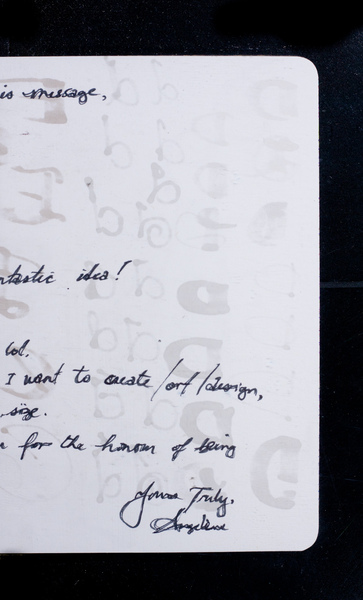 is message,
ntastic idea!
lol.
I want to create /art /design,
size.
for the honour of being
Yours Truly,
Angelina